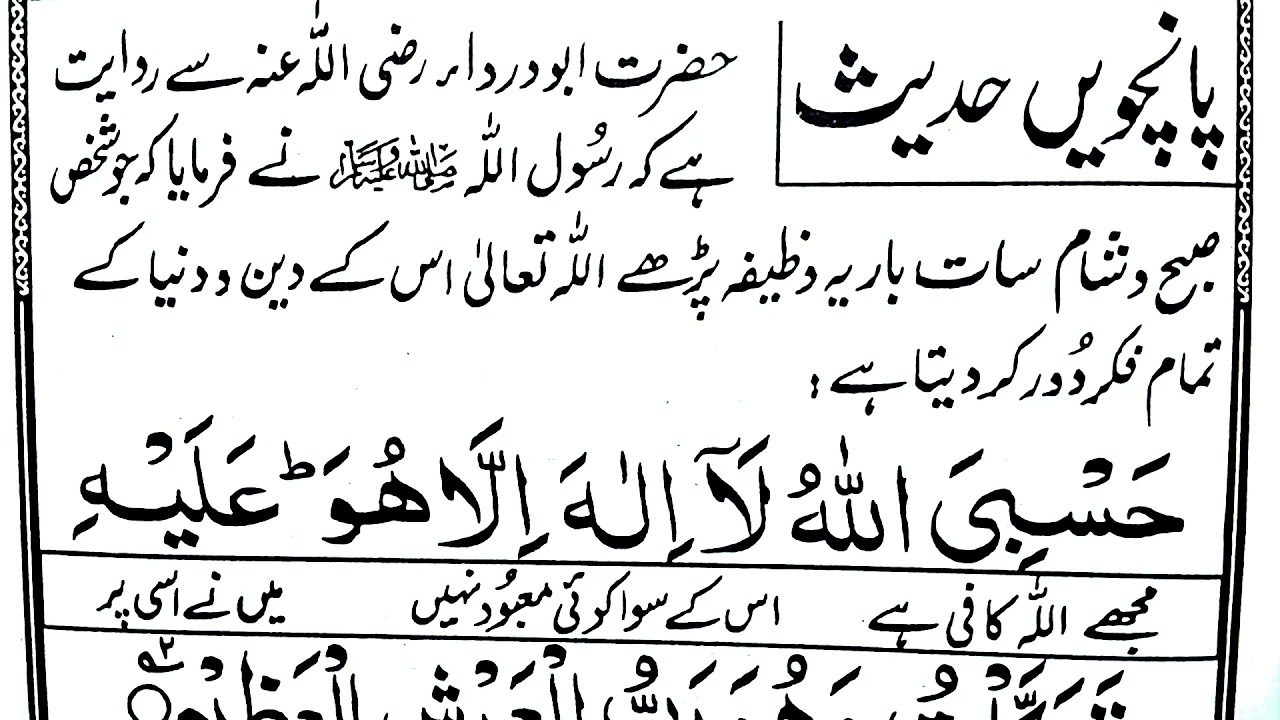 پانچویں حدیث
حضرت ابودرداء رضی اللہ عنہ سے روایت
ہے کہ رسُول اللہ ﷺ نے فرمایا کہ جو شخص
صبح و شام سات بار یہ وظیفہ پڑھے اللہ تعالیٰ اس کے دین و دنیا کے
تمام فکر دُور کر دیتا ہے :
حَسْبِیَ اللّٰهُ لَآ اِلٰهَ اِلَّا هُوَ ؕ عَلَیْهِ
مجھے اللہ کافی ہے اس کے سوا کوئی معبُود نہیں میں نے اسی پر
تَوَكَّلْتُ وَهُوَ رَبُّ الْعَرْشِ الْعَظِیْمِ